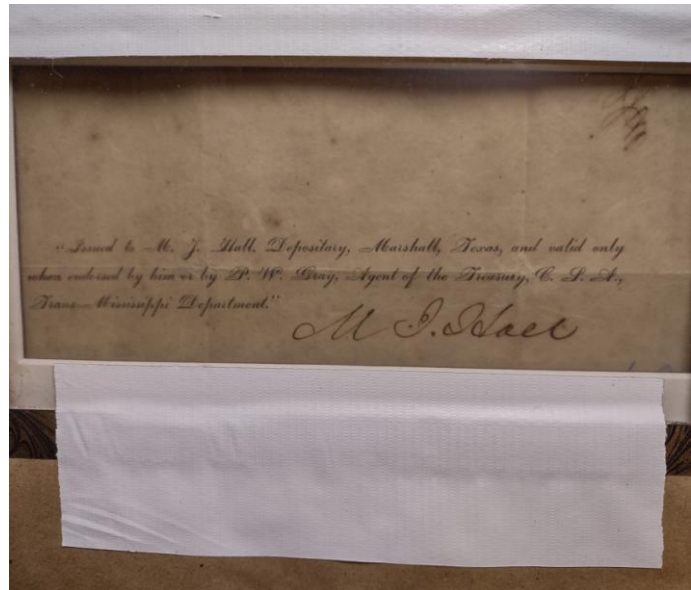 "Issued to M. J. Hall, Depositary, Marshall, Texas, and valid only
when endorsed by him or by P. W. Gray, Agent of the Treasury, C. S. A.,
Trans-Mississippi Department."
M J. Hall